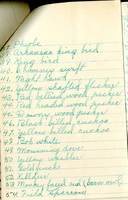 Phoebe
38. Arkansas king bird
39. King bird
40. Chimney swift
41. Night hawk
42. Yellow shafted flicker
43. Red bellied wood pecker
44. Red headed wood pecker
45. Downy wood pecker
46. Black billed cuckoo
47. Yellow billed cuckoo
48. Bob white
49. Mourning dove
50. Yellow warbler
51. Goldfinch
52. Killdeer
53. Monkey faced owl (barn owl)
54. Field Sparrow